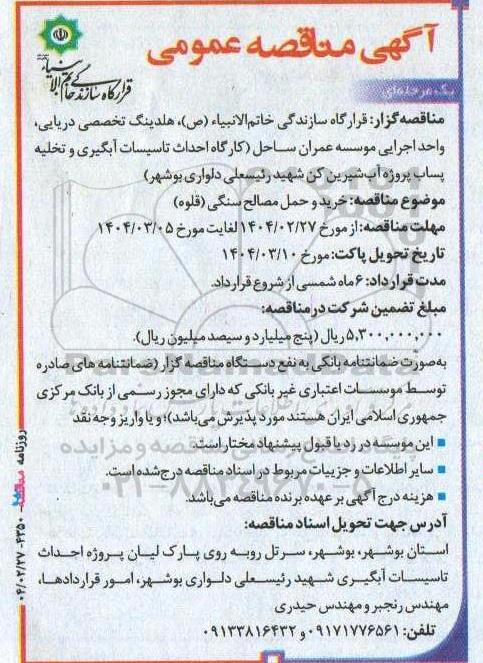 آگهی مناقصه عمومی
قرارگاه سازندگی خاتم الانبیاء
یک مرحله‌ای
مناقصه‌گزار: قرارگاه سازندگی خاتم‌الانبیاء (ص)، هلدینگ تخصصی دریایی،
واحد اجرایی موسسه عمران ساحل (کارگاه احداث تاسیسات آبگیری و تخلیه
پساب پروژه آب‌شیرین کن شهید رئیسعلی دلواری بوشهر)
موضوع مناقصه: خرید و حمل مصالح سنگی (قلوه)
مهلت مناقصه: از مورخ ۱۴۰۴/۰۲/۲۷ لغایت مورخ ۱۴۰۴/۰۳/۰۵
تاریخ تحویل پاکت: مورخ ۱۴۰۴/۰۳/۱۰
مدت قرارداد: ۶ ماه شمسی از شروع قرارداد.
مبلغ تضمین شرکت در مناقصه:
۵,۳۰۰,۰۰۰,۰۰۰ ریال (پنج میلیارد و سیصد میلیون ریال).
به‌صورت ضمانتنامه بانکی به نفع دستگاه مناقصه گزار (ضمانتنامه های صادره
توسط موسسات اعتباری غیر بانکی که دارای مجوز رسمی از بانک مرکزی
جمهوری اسلامی ایران هستند مورد پذیرش می‌باشد)؛ و یا واریز وجه نقد
■ این موسسه در رد یا قبول پیشنهاد مختار است.
■ سایر اطلاعات و جزییات مربوط در اسناد مناقصه درج شده است.
■ هزینه درج آگهی بر عهده برنده مناقصه می‌باشد.
آدرس جهت تحویل اسناد مناقصه:
استان بوشهر، بوشهر، سرتل روبه روی پارک لیان پروژه احداث
تاسیسات آبگیری شهید رئیسعلی دلواری بوشهر، امور قراردادها،
مهندس رنجبر و مهندس حیدری
تلفن: ۰۹۱۷۱۷۷۶۵۶۱ و ۰۹۱۳۳۸۱۶۴۳۲
روزنامه مناقصه ۴۳۵۰ - ۰۴/۰۲/۲۷
۰۲۱-۸۸۳۴۹۶۷۰-۵